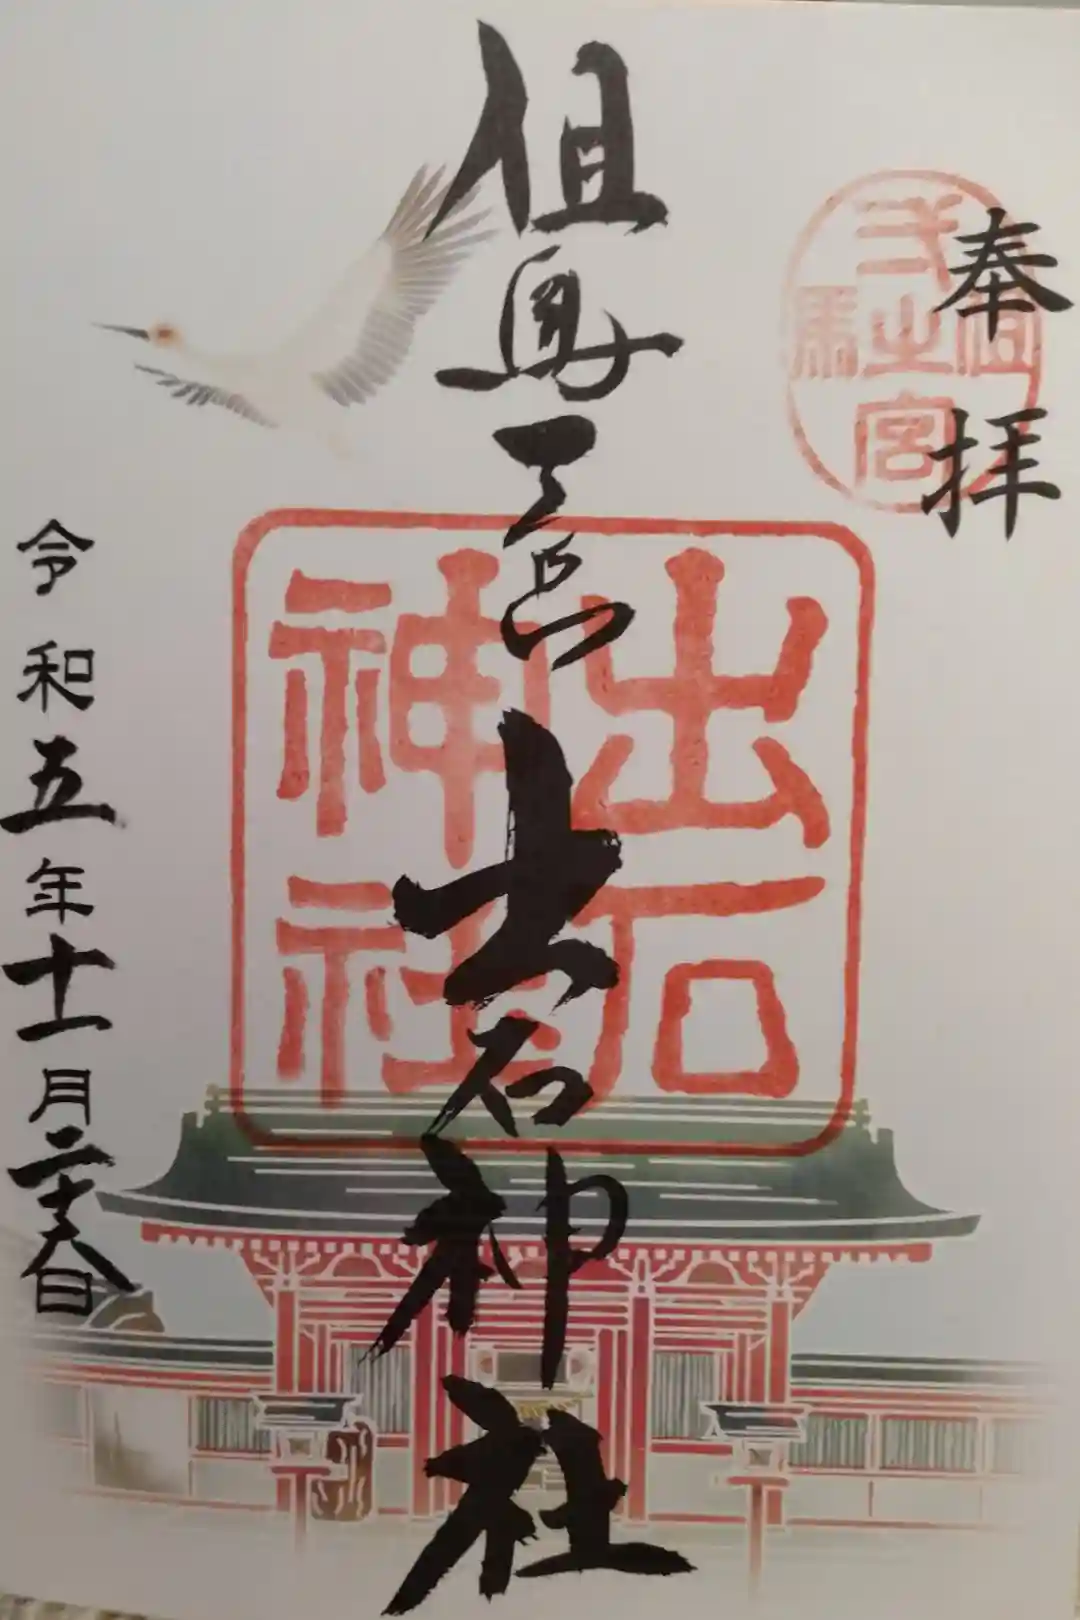 奉拝
但馬
弌之宮
但馬一宮出石神社
出石
神社
令和五年十一月二十八日